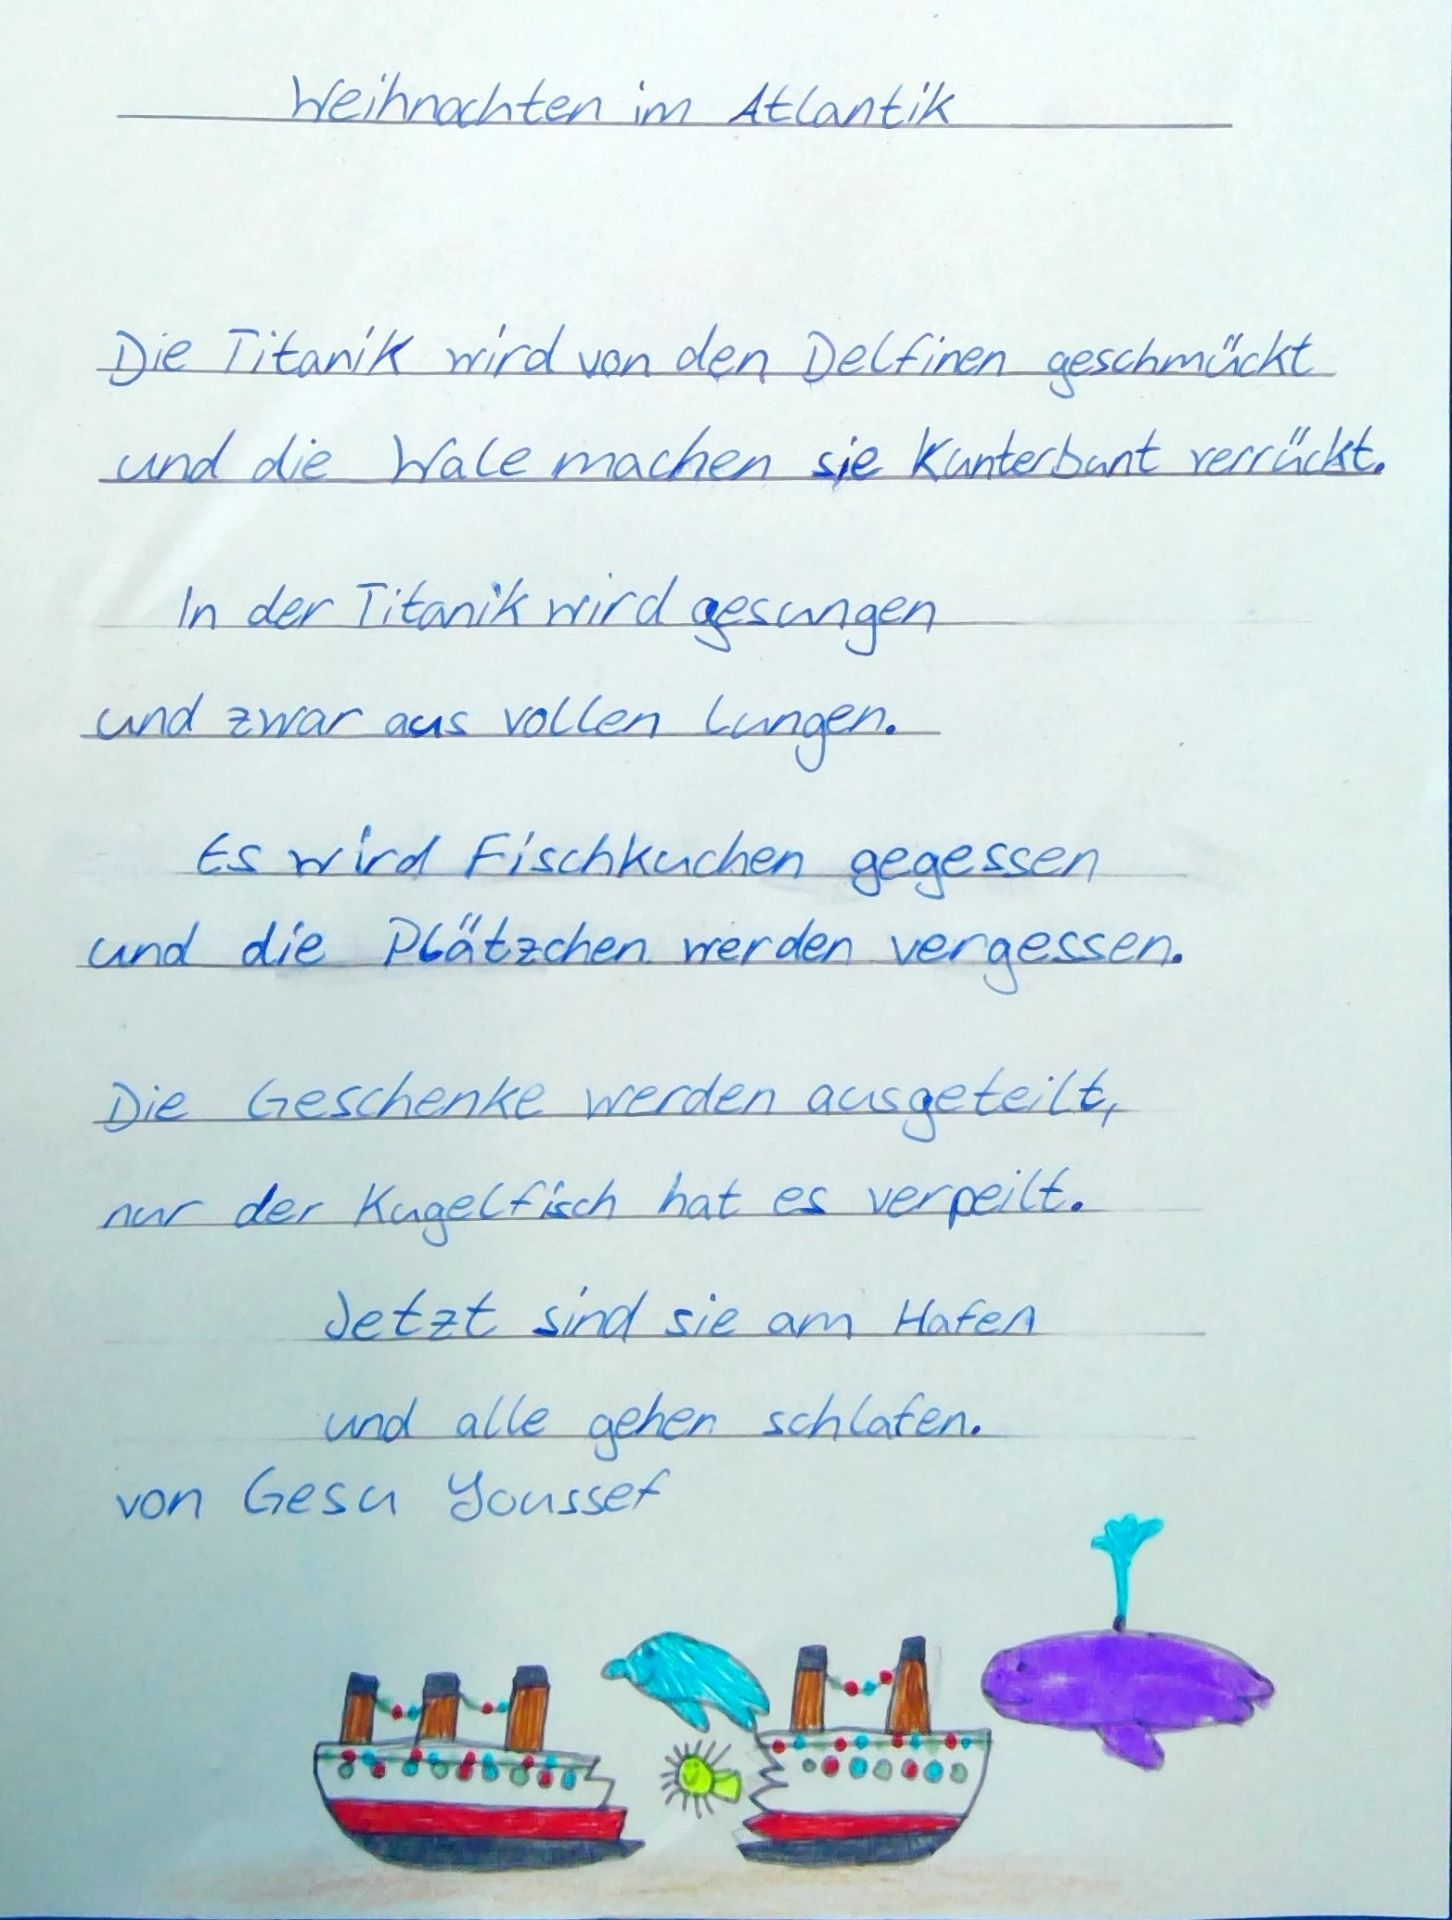 Weihnachten im Atlantik
Die Titanik wird von den Delfinen geschmückt
und die Wale machen sie Kunterbunt verrückt.
In der Titanik wird gesungen
und zwar aus vollen Lungen.
Es wird Fischkuchen gegessen
und die Plätzchen werden vergessen.
Die Geschenke werden ausgeteilt,
nur der Kugelfisch hat es verpeilt.
Jetzt sind sie am Hafen
und alle gehen schlafen.
von Gesu Youssef